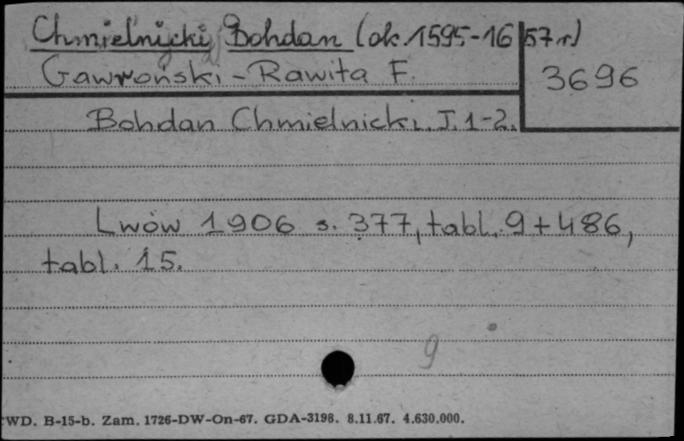 Chmielnicki Bohdan (ok. 1595-1657 r)
Gawroński-Rawita F.
3696
Bohdan Chmielnicki. T. 1-2.
Lwów 1906 s. 377, tabl. 9 + 486,
tabl. 15.
9
WD. B-15-b. Zam. 1726-DW-On-67. GDA-3198. 8.11.67. 4.630.000.